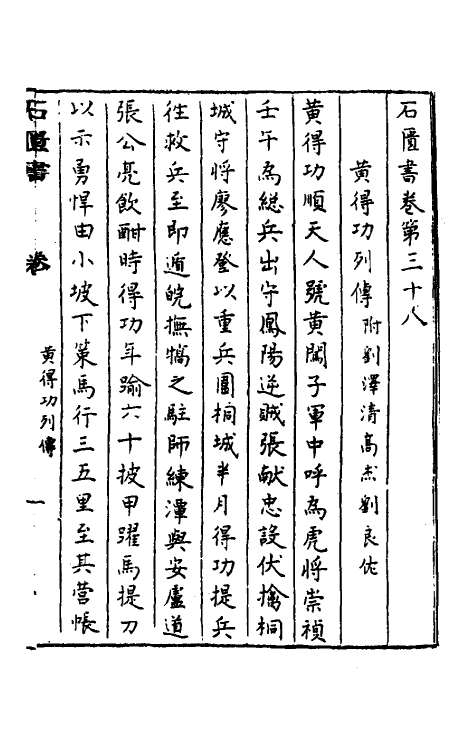 石匱書卷第三十八
黃得功列傳 附劉澤清高杰劉良佐
黃得功順天人號黃闖子軍中呼為虎將崇禎
壬午為総兵出守鳳陽逆賊張献忠設伏擒桐
城守將廖應登以重兵圍桐城半月得功提兵
往救兵至即遁皖撫犒之駐師練潭與安廬道
張公亮飲酣時得功年踰六十披甲躍馬提刀
以示勇悍由小坡下策馬行三五里至其營帳
石匱書 卷 黃得功列傳 一